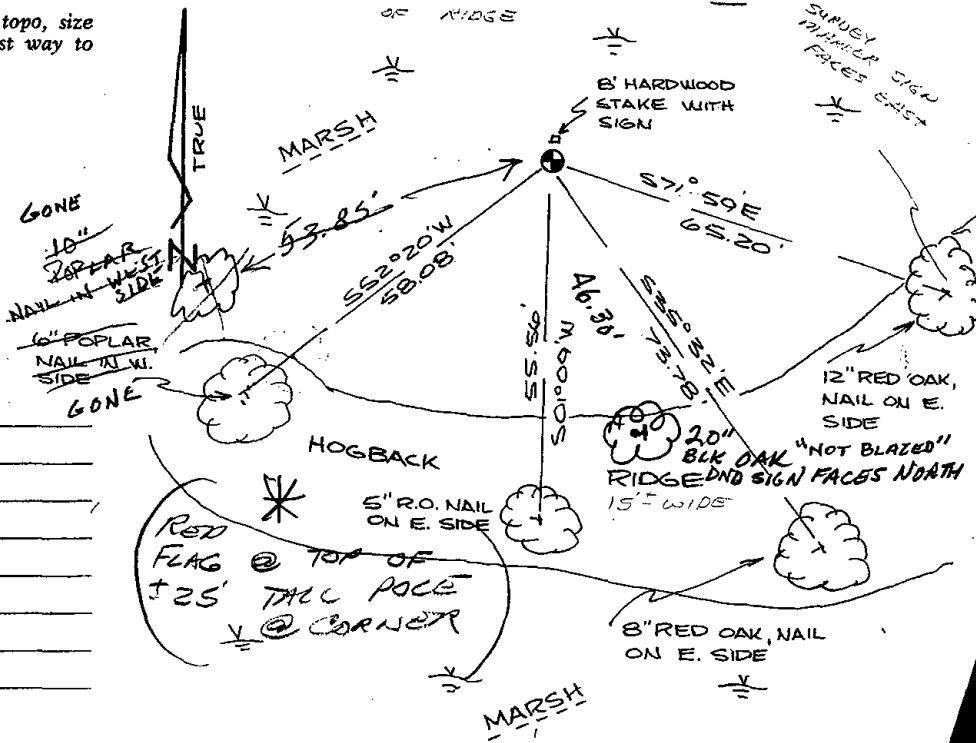 topo, size
st way to
OF RIDGE
SURVEY
MARKER SIGN
FACES EAST
8' HARDWOOD
STAKE WITH
SIGN
TRUE
N
MARSH
GONE
10"
POPLAR
NAIL IN WEST
SIDE
53.85'
S52°20'W
58.08'
S71°59'E
65.20'
55.56'
S01°09'W
46.30'
S35°32'E
73.78'
6" POPLAR
NAIL IN W.
SIDE
GONE
12" RED OAK,
NAIL ON E.
SIDE
HOGBACK
20"
BLK OAK "NOT BLAZED"
RIDGE DND SIGN FACES NORTH
15'± WIDE
5" R.O. NAIL
ON E. SIDE
RED
FLAG @ TOP OF
±25' TALL POLE
@ CORNER
8" RED OAK, NAIL
ON E. SIDE
MARSH